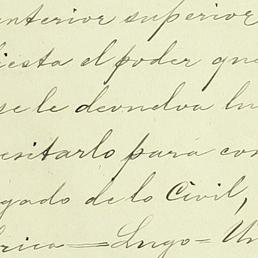 anterior superior
iesta el poder que
se le devuelva lu
esitarlo para con
gado de lo Civil,
brica = Lugo = Un